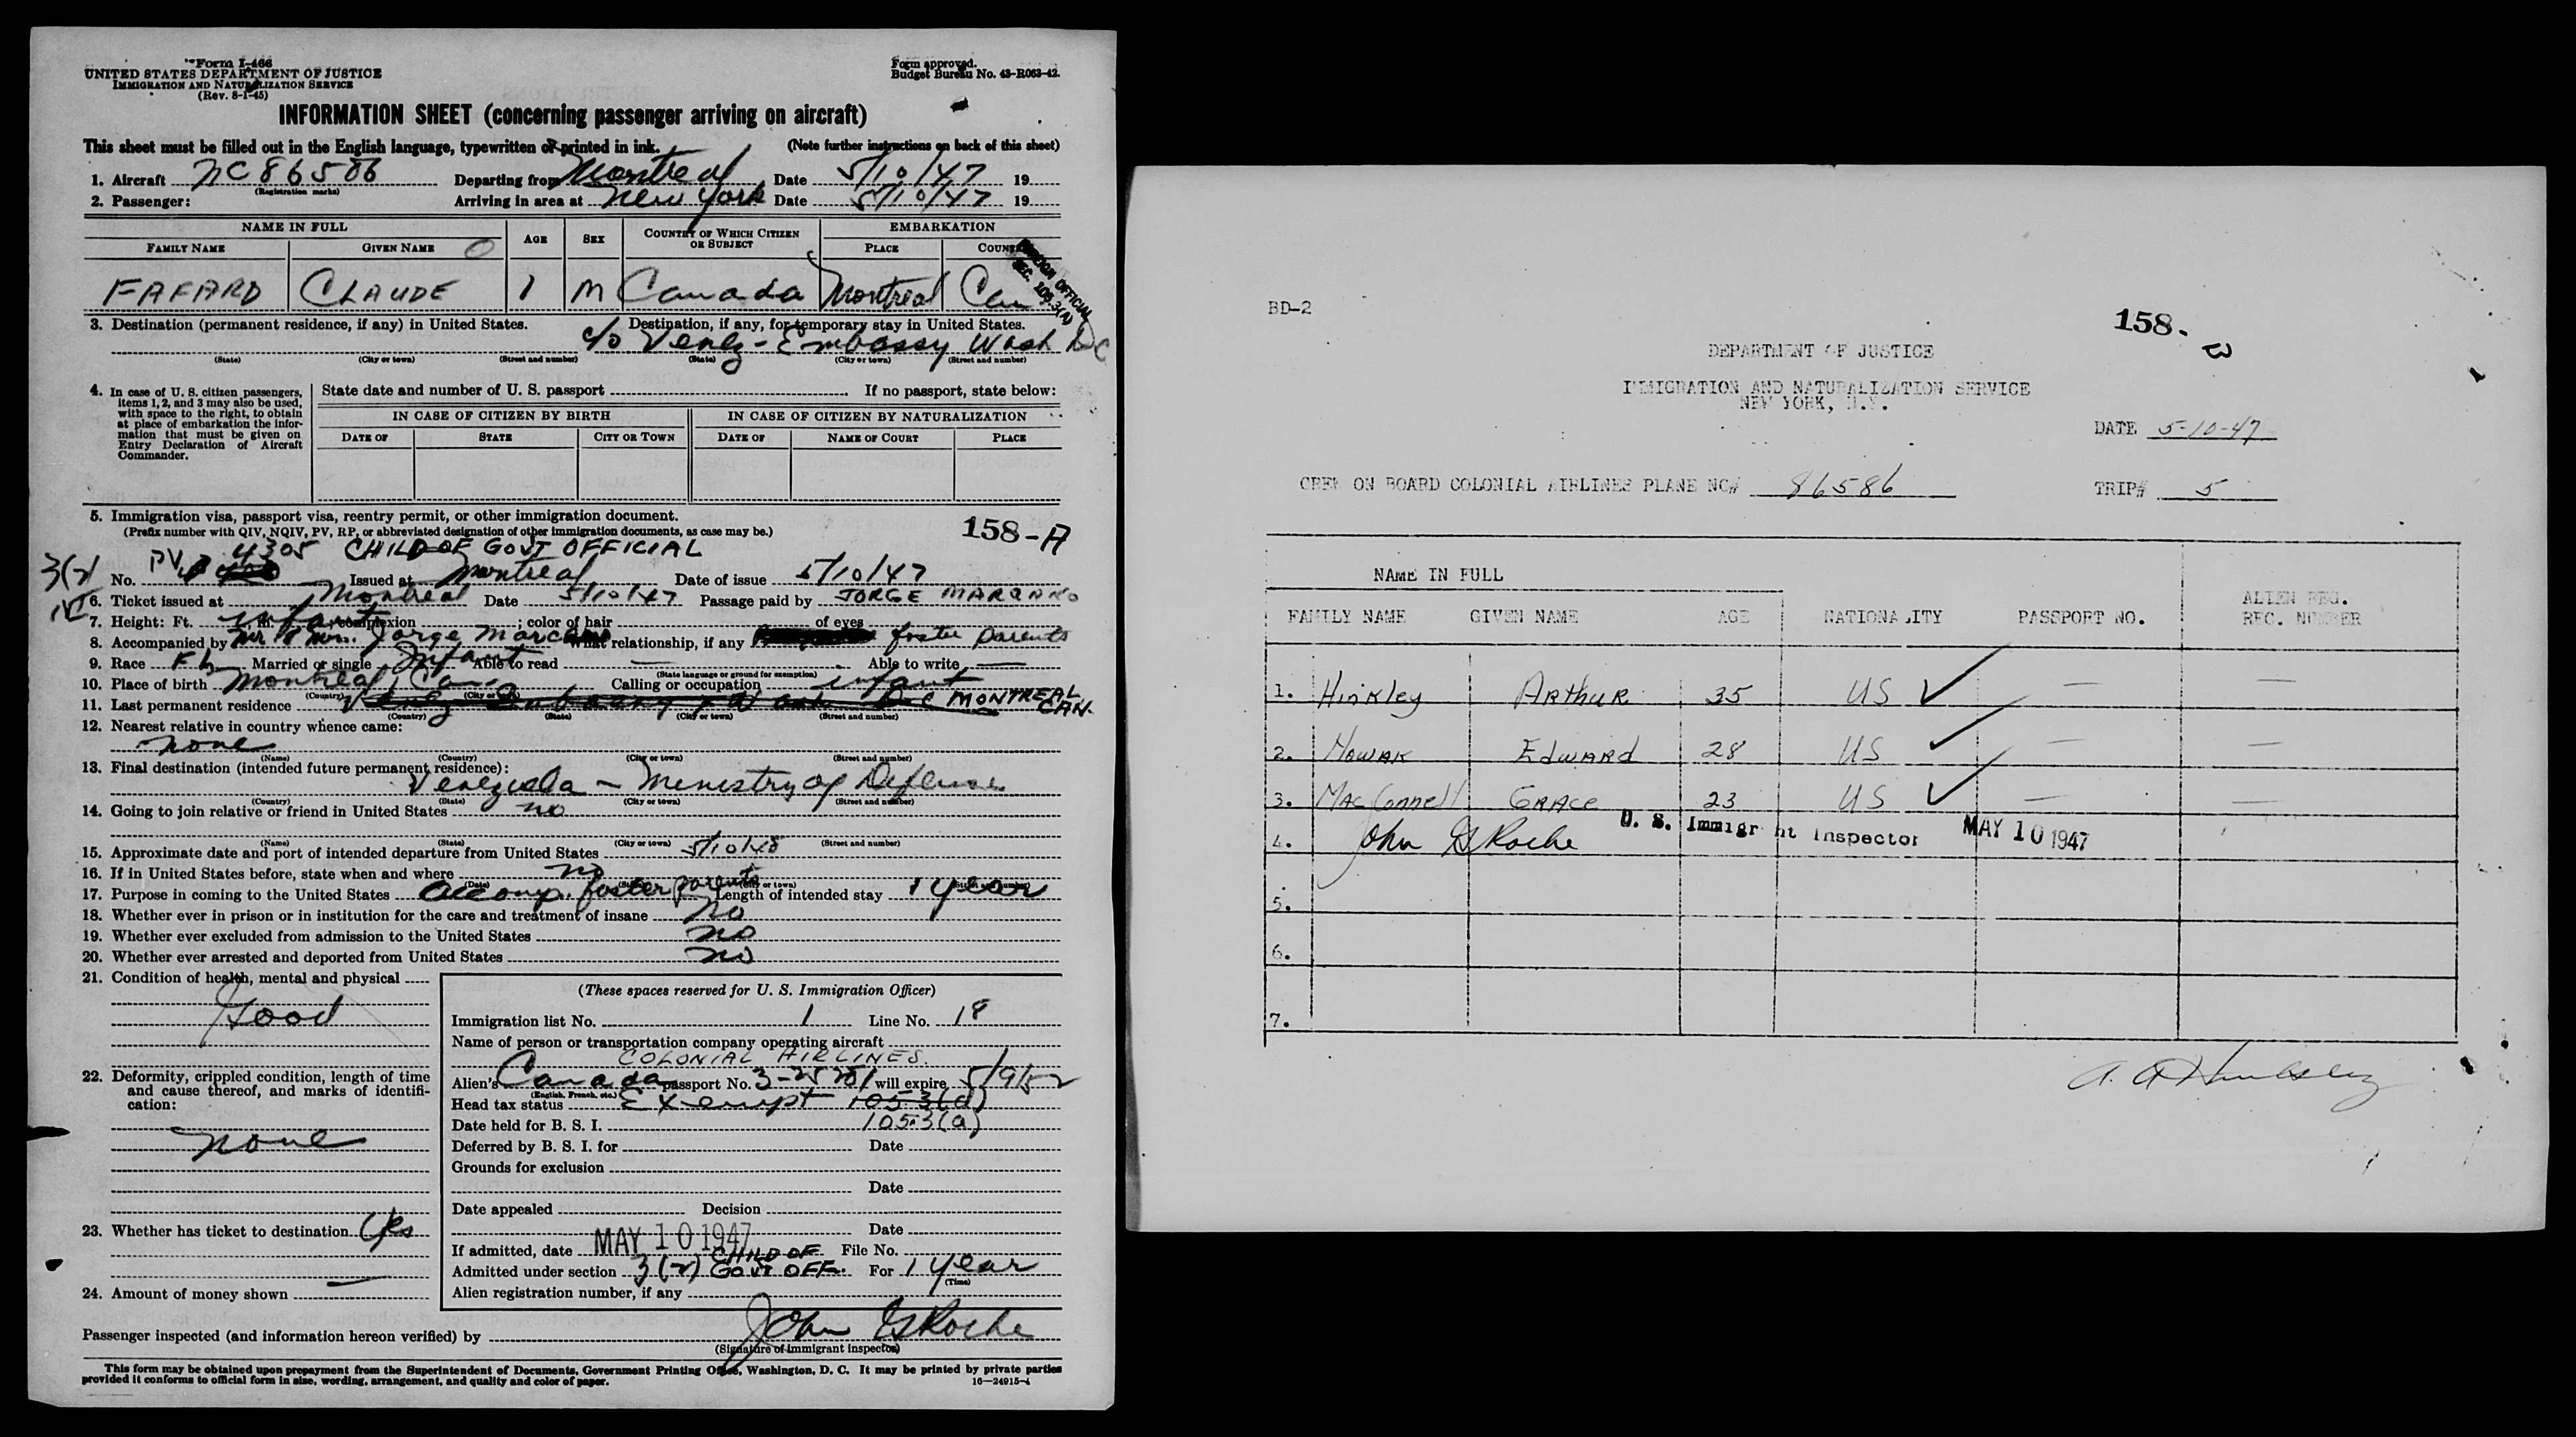 Form I-466
UNITED STATES DEPARTMENT OF JUSTICE
IMMIGRATION AND NATURALIZATION SERVICE
(Rev. 8-1-45)
Form approved.
Budget Bureau No. 43-R063-42.
INFORMATION SHEET (concerning passenger arriving on aircraft)
This sheet must be filled out in the English language, typewritten or printed in ink. (Note further instructions on back of this sheet)
1. Aircraft NC 86586 Departing from Montreal Date 5/10/47 19
(Registration marks)
2. Passenger: Arriving in area at New York Date 5/10/47 19
NAME IN FULL AGE SEX COUNTRY OF WHICH CITIZEN OR SUBJECT EMBARKATION
FAMILY NAME GIVEN NAME PLACE COUNTRY
FAFARD CLAUDE 1 M Canada Montreal Can
FOREIGN OFFICIAL
SEC. 105.3(A)
3. Destination (permanent residence, if any) in United States. Destination, if any, for temporary stay in United States.
c/o Venez - Embassy Wash DC
(State) (City or town) (Street and number) (State) (City or town) (Street and number)
4. In case of U. S. citizen passengers, items 1, 2, and 3 may also be used, with space to the right, to obtain at place of embarkation the information that must be given on Entry Declaration of Aircraft Commander.
State date and number of U. S. passport If no passport, state below:
IN CASE OF CITIZEN BY BIRTH IN CASE OF CITIZEN BY NATURALIZATION
DATE OF STATE CITY OR TOWN DATE OF NAME OF COURT PLACE
5. Immigration visa, passport visa, reentry permit, or other immigration document.
(Prefix number with QIV, NQIV, PV, RP, or abbreviated designation of other immigration documents, as case may be.)
158-A
3(2) PV 4305 CHILD OF GOVT OFFICIAL
No. Issued at Montreal Date of issue 5/10/47
6. Ticket issued at Montreal Date 5/10/47 Passage paid by JORGE MARCANO
7. Height: Ft. infant, in. ; complexion ; color of hair of eyes
8. Accompanied by Mr & Mrs. Jorge Marcano What relationship, if any foster parents
9. Race Fh Married or single Infant Able to read — Able to write —
(State language or ground for exemption)
10. Place of birth Montreal, Can. Calling or occupation infant
(Country) (City or town)
11. Last permanent residence Venez Embassy Wash DC MONTREAL CAN.
(Country) (State) (City or town) (Street and number)
12. Nearest relative in country whence came:
none
(Name) (Country) (City or town) (Street and number)
13. Final destination (intended future permanent residence):
Venezuela - Ministry of Defense
(Country) (State) (City or town) (Street and number)
14. Going to join relative or friend in United States no
(Name) (State) (City or town) (Street and number)
15. Approximate date and port of intended departure from United States 5/10/48
16. If in United States before, state when and where no
(Date) (State) (City or town) (Street and number)
17. Purpose in coming to the United States accomp. foster parents Length of intended stay 1 year
18. Whether ever in prison or in institution for the care and treatment of insane no
19. Whether ever excluded from admission to the United States no
20. Whether ever arrested and deported from United States no
21. Condition of health, mental and physical
Good
22. Deformity, crippled condition, length of time and cause thereof, and marks of identification:
none
23. Whether has ticket to destination Yes
24. Amount of money shown —
(These spaces reserved for U. S. Immigration Officer)
Immigration list No. 1 Line No. 18
Name of person or transportation company operating aircraft
COLONIAL AIRLINES.
Alien's Canada passport No. will expire 5/9/52
(English, French, etc.)
Head tax status Exempt 105.3(d)
105.3(a)
Date held for B. S. I.
Deferred by B. S. I. for Date
Grounds for exclusion
Date
Date appealed Decision
Date
If admitted, date MAY 10 1947 File No.
Admitted under section 3(2) CHILD OF GOVT OFF. For 1 year
(Time)
Alien registration number, if any
Passenger inspected (and information hereon verified) by John G Roche
(Signature of immigrant inspector)
This form may be obtained upon prepayment from the Superintendent of Documents, Government Printing Office, Washington, D. C. It may be printed by private parties
provided it conforms to official form in size, wording, arrangement, and quality and color of paper.
16—24915-4
BD-2
158-B
DEPARTMENT OF JUSTICE
IMMIGRATION AND NATURALIZATION SERVICE
NEW YORK, N.Y.
DATE 5-10-47
CREW ON BOARD COLONIAL AIRLINES PLANE NC# 86586 TRIP# 5
NAME IN FULL
FAMILY NAME GIVEN NAME AGE NATIONALITY PASSPORT NO. ALIEN REG. REC. NUMBER
1. Hinkley ARTHUR 35 US — —
2. Nowak EDWARD 28 US — —
3. MacConnell GRACE 23 US — —
4. John G Roche U. S. Immigrant Inspector MAY 10 1947
5.
6.
7.